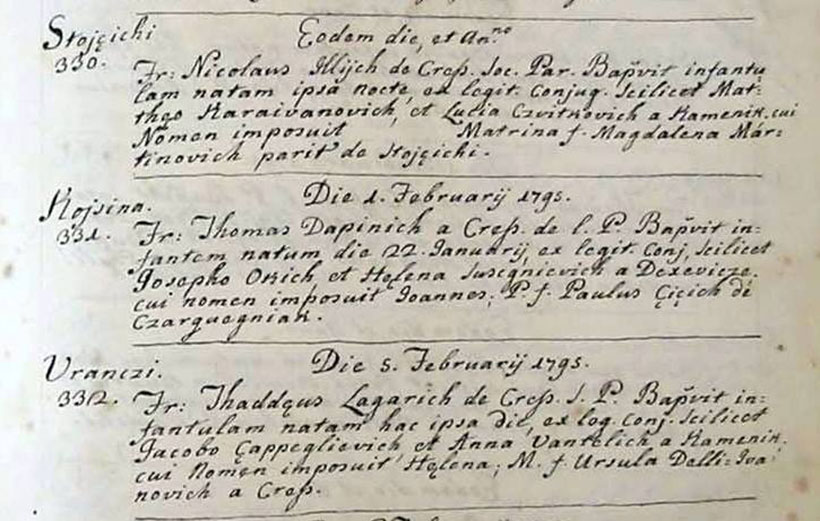 Stojçichi
330.
Eodem die, et An:no
Fr: Nicolaus Illijch de Creß. Soc. Par. Bapvit infantu
lam natam ipsa nocte, ex legit. Conjug. scilicet Mat=
thęo Karaivanovich, et Lucia Czvitkovich a Kamenik. cui
Nomen imposuit Matrina f. Magdalena Mar=
tinovich parit de Stojçichi.
Kojsina.
331.
Die 1. Februarij 1795.
Fr: Thomas Dapinich a Creß. de l. P. Bapvit in=
fantem natum die 22. Januarij, ex legit. Conj. scilicet
Josepho Okich et Hęlena Susęgnievich a Dexevicze.
cui nomen imposuit Joannes; P. f. Paulus Çiçich de
Czarguegniak.
Vranczi.
332.
Die 5. Februarij 1795.
Fr: Thaddęus Lagarich de Creß. S. P. Bapvit in=
fantulam natam hac ipsa die, ex leg. Conj. scilicet
Jacobo Çappeglievich, et Anna Vantelich a Kamenik.
cui Nomen imposuit Hęlena; M. f. Ursula Delli=Iva
novich a Creß.